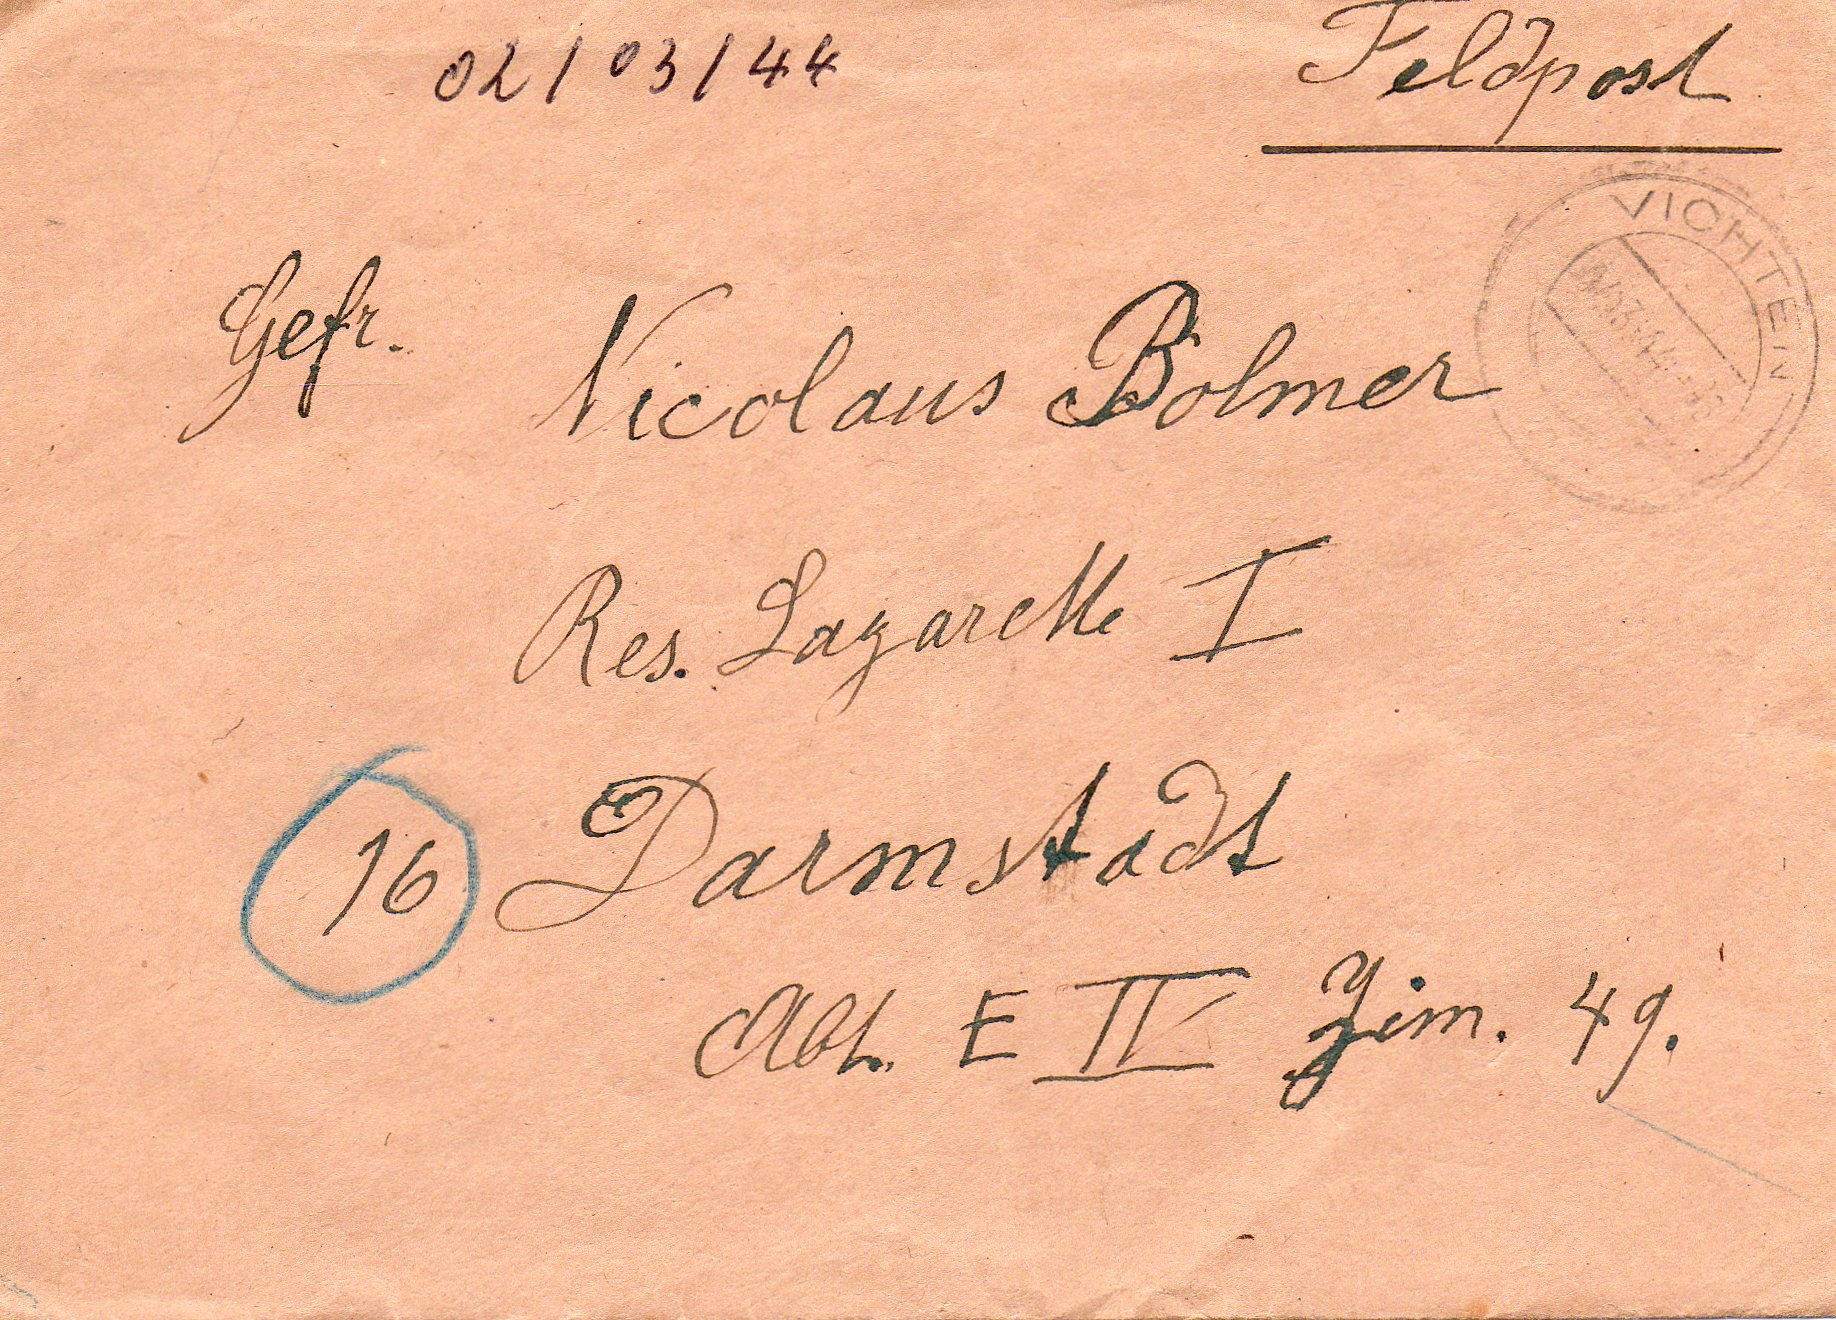 02/03/44
Feldpost
VICHTEN
Gefr. Nicolaus Bolmer
Res. Lazarette I
16 Darmstadt
Abt. E II Zim. 49.